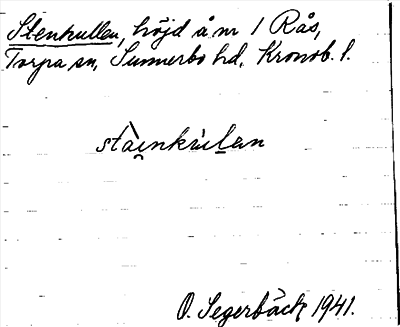 Stenkullen, höjd å nr 1 Rås,
Torpa sn, Sunnerbo hd, Kronob. l.
stài̯nkùlen
O. Segerbäck 1941.